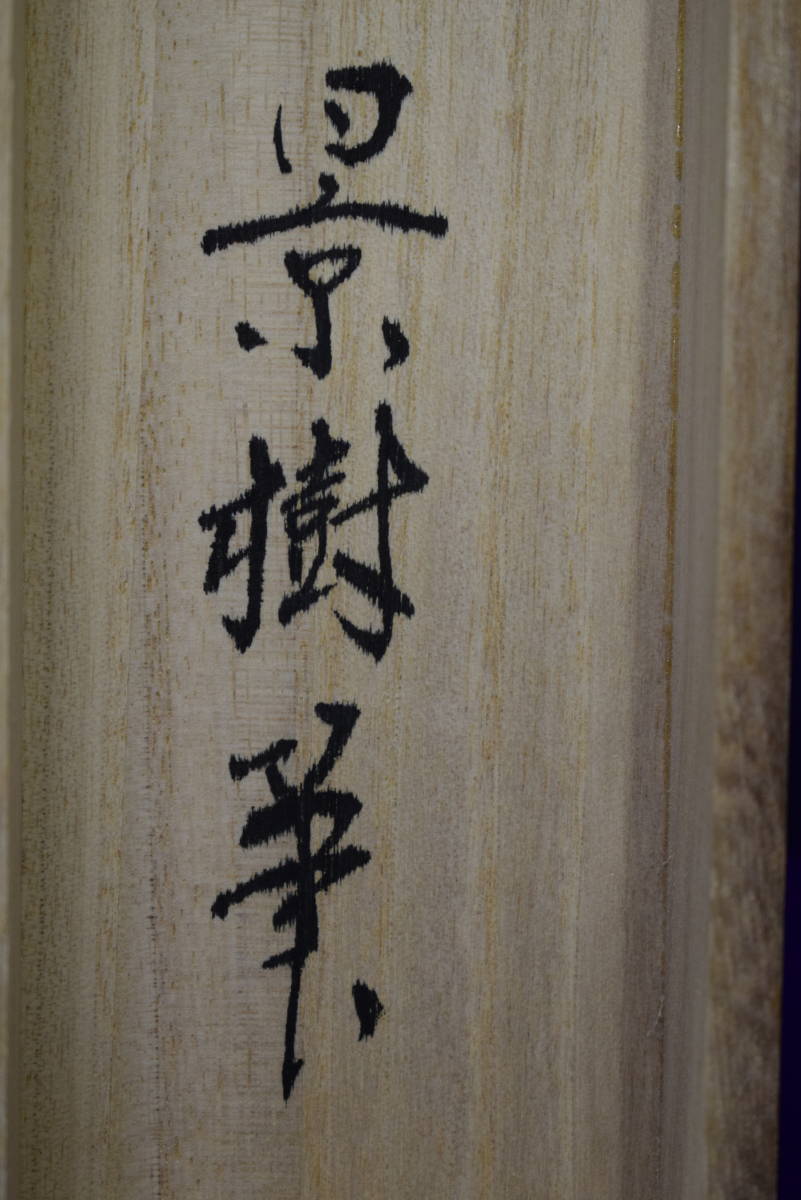 景樹筆